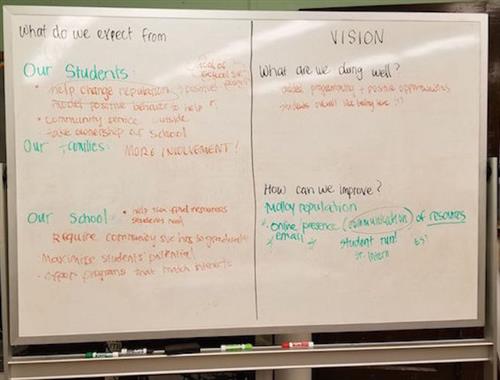 What do we expect from
Our Students:
school or
• help change reputation positive
model positive behavior to help
• community service outside
take ownership our school
Our Families: MORE INVOLVEMENT!
Our School • help them find resources
students need
Require community svc hrs to graduate
Maximize students' potential
offer programs that match interests
VISION
What are we doing well?
added programming + positive opportunities
students overall like being here
How can we improve?
Malloy reputation
online presence (communication) of resources
email
student run!
Intern